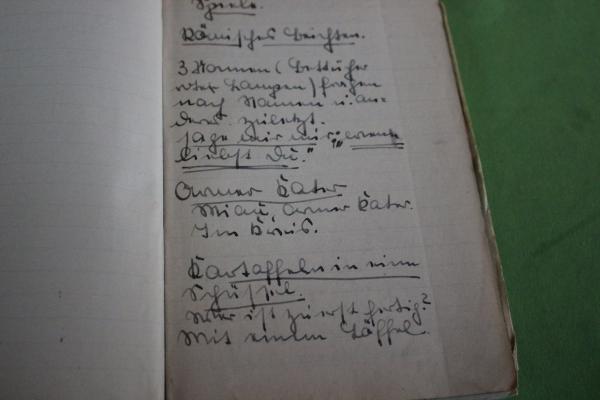 Spiele.
Römisches Beichten.
3 Nonnen (Bettücher
rote Lampen) fragen
nach Namen u. an-
derer zuletzt.
sage mir nur
liebst Du."
Armer Kater
Miau, Armer Kater.
Im Kreis.
Kartoffeln in eine
Schüssel.
Wer ist zuerst fertig?
Mit einem Löffel.